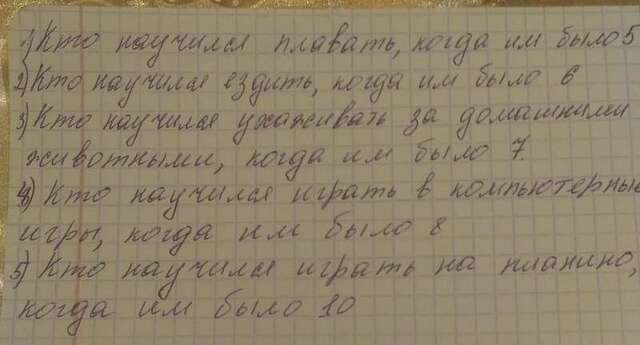 1) Кто научился плавать, когда им было 5
2) Кто научился ездить, когда им было 6
3) Кто научился ухаживать за домашними
животными, когда им было 7.
4) Кто научился играть в компьютерные
игры, когда им было 8
5) Кто научился играть на планино,
когда им было 10